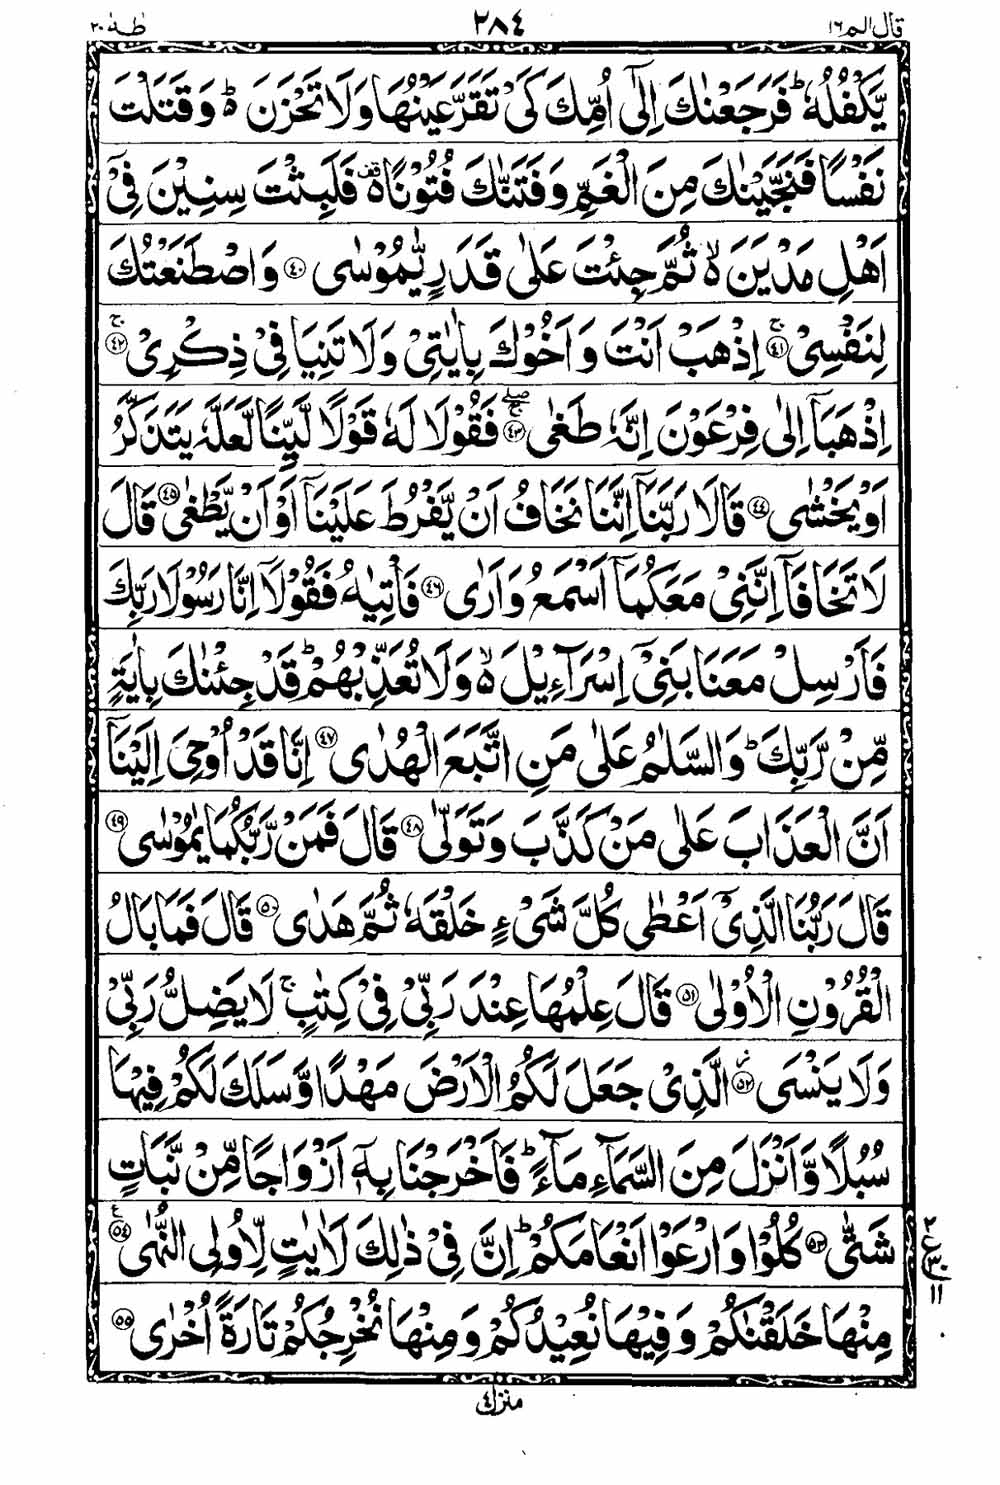 قال الم ١٦ ٢٨٤ طٰهٰ ٢٠
يَّكْفُلُهٗ ؕ فَرَجَعْنٰكَ اِلٰۤى اُمِّكَ كَىْ تَقَرَّ عَيْنُهَا وَلَا تَحْزَنَ ؕ۬ وَقَتَلْتَ
نَفْسًا فَنَجَّيْنٰكَ مِنَ الْغَمِّ وَفَتَنّٰكَ فُتُوْنًا ۫۬ فَلَبِثْتَ سِنِيْنَ فِىْۤ
اَهْلِ مَدْيَنَ ۙ۬ ثُمَّ جِئْتَ عَلٰى قَدَرٍ يّٰمُوْسٰى ﴿۴۰﴾ وَاصْطَنَعْتُكَ
لِنَفْسِىْ ۚ﴿۴۱﴾ اِذْهَبْ اَنْتَ وَاَخُوْكَ بِاٰيٰتِىْ وَلَا تَنِيَا فِىْ ذِكْرِىْ ۚ﴿۴۲﴾
اِذْهَبَاۤ اِلٰى فِرْعَوْنَ اِنَّهٗ طَغٰى ۚۖ﴿۴۳﴾ فَقُوْلَا لَهٗ قَوْلًا لَّيِّنًا لَّعَلَّهٗ يَتَذَكَّرُ
اَوْ يَخْشٰى ﴿۴۴﴾ قَالَا رَبَّنَاۤ اِنَّنَا نَخَافُ اَنْ يَّفْرُطَ عَلَيْنَاۤ اَوْ اَنْ يَّطْغٰى ﴿۴۵﴾ قَالَ
لَا تَخَافَاۤ اِنَّنِىْ مَعَكُمَاۤ اَسْمَعُ وَاَرٰى ﴿۴۶﴾ فَاْتِيٰهُ فَقُوْلَاۤ اِنَّا رَسُوْلَا رَبِّكَ
فَاَرْسِلْ مَعَنَا بَنِىْۤ اِسْرَآءِيْلَ ۙ۬ وَلَا تُعَذِّبْهُمْ ؕ قَدْ جِئْنٰكَ بِاٰيَةٍ
مِّنْ رَّبِّكَ ؕ وَالسَّلٰمُ عَلٰى مَنِ اتَّبَعَ الْهُدٰى ﴿۴۷﴾ اِنَّا قَدْ اُوْحِىَ اِلَيْنَاۤ
اَنَّ الْعَذَابَ عَلٰى مَنْ كَذَّبَ وَتَوَلّٰى ﴿۴۸﴾ قَالَ فَمَنْ رَّبُّكُمَا يٰمُوْسٰى ﴿۴۹﴾
قَالَ رَبُّنَا الَّذِىْۤ اَعْطٰى كُلَّ شَىْءٍ خَلْقَهٗ ثُمَّ هَدٰى ﴿۵۰﴾ قَالَ فَمَا بَالُ
الْقُرُوْنِ الْاُوْلٰى ﴿۵۱﴾ قَالَ عِلْمُهَا عِنْدَ رَبِّىْ فِىْ كِتٰبٍ ۚ لَا يَضِلُّ رَبِّىْ
وَلَا يَنْسَى ؗ﴿۵۲﴾ الَّذِىْ جَعَلَ لَكُمُ الْاَرْضَ مَهْدًا وَّسَلَكَ لَكُمْ فِيْهَا
سُبُلًا وَّاَنْزَلَ مِنَ السَّمَآءِ مَآءً ؕ فَاَخْرَجْنَا بِهٖۤ اَزْوَاجًا مِّنْ نَّبَاتٍ
شَتّٰى ﴿۵۳﴾ كُلُوْا وَارْعَوْا اَنْعَامَكُمْ ؕ اِنَّ فِىْ ذٰلِكَ لَاٰيٰتٍ لِّاُولِى النُّهٰى ﴿۵۴﴾ع
مِنْهَا خَلَقْنٰكُمْ وَفِيْهَا نُعِيْدُكُمْ وَمِنْهَا نُخْرِجُكُمْ تَارَةً اُخْرٰى ﴿۵۵﴾
منزل ٤